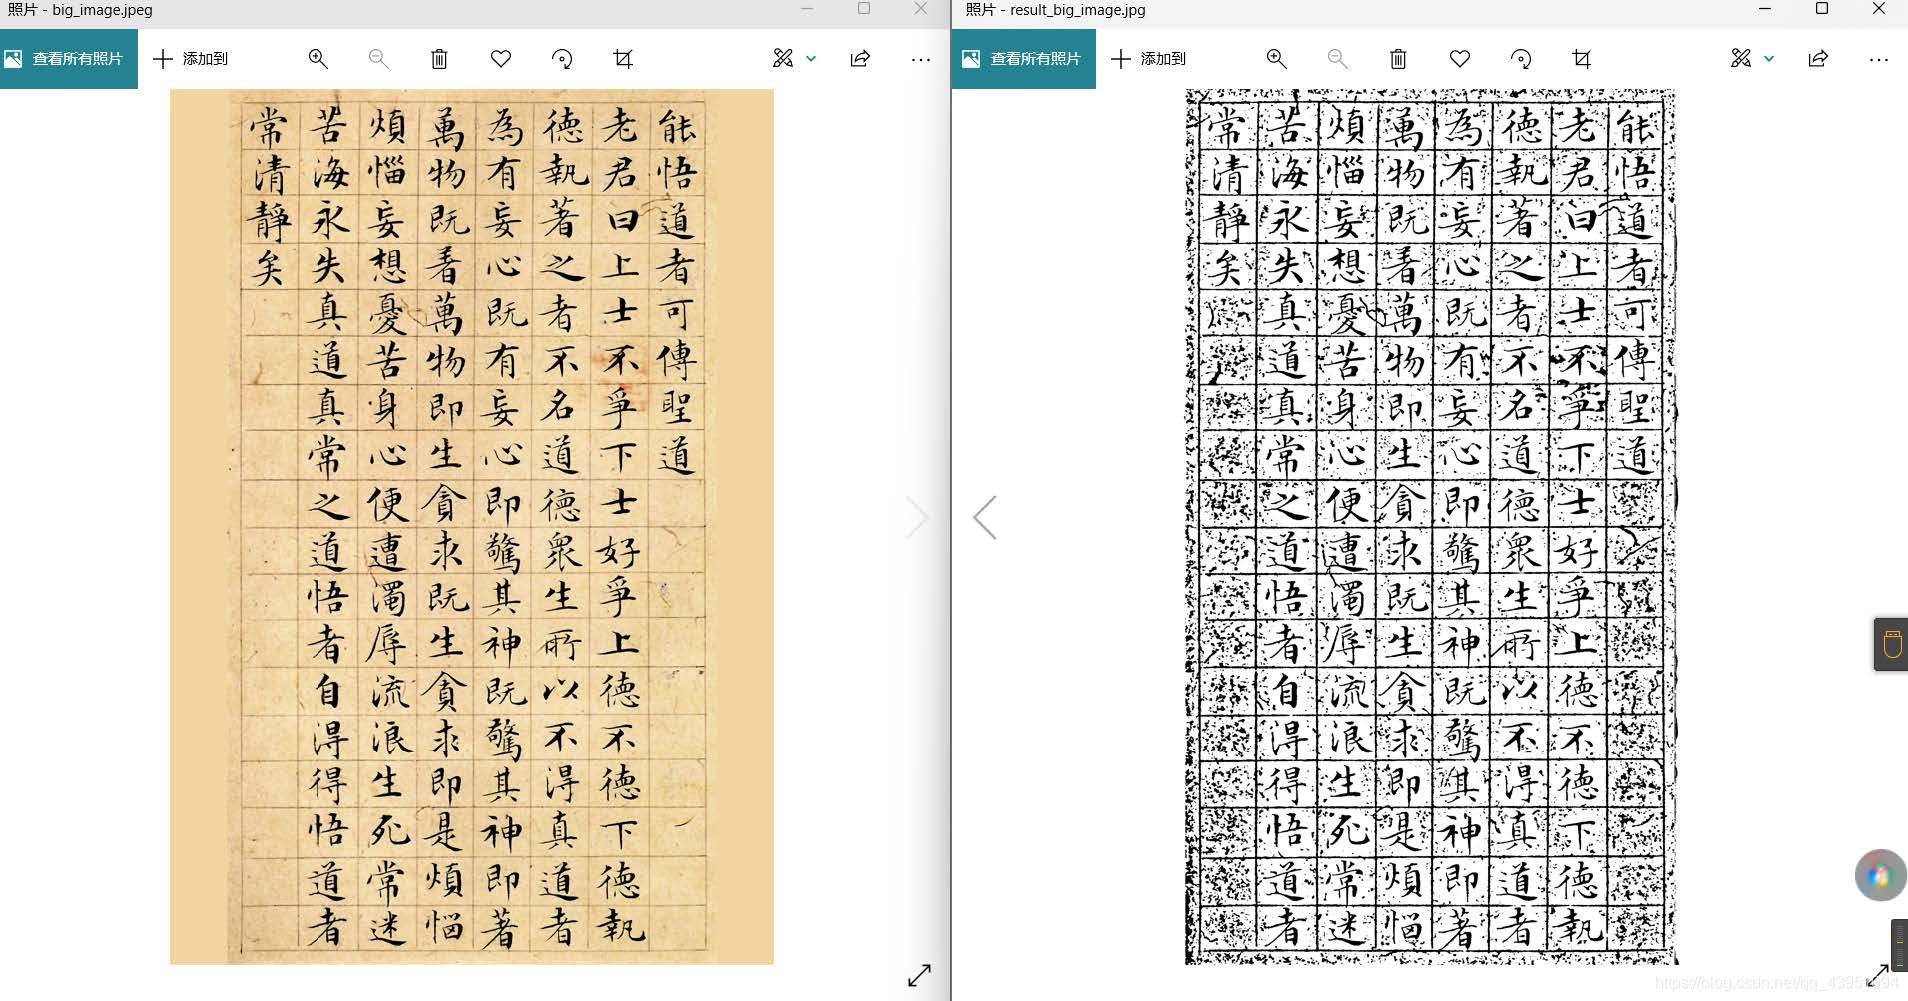 照片 - big_image.jpeg
查看所有照片
添加到
能悟道者可傳聖道
老君曰上士不爭下士好爭上德不德下德執
德執著之者不名道德衆生所以不得真道者
為有妄心既有妄心即驚其神既驚其神即著
萬物既着萬物即生貪求既生貪求即是煩惱
煩惱妄想憂苦身心便遭濁辱流浪生死常迷
苦海永失真道真常之道悟者自得得悟道者
常清靜矣
照片 - result_big_image.jpg
查看所有照片
添加到
能悟道者可傳聖道
老君曰上士不爭下士好爭上德不德下德執
德執著之者不名道德衆生所以不得真道者
為有妄心既有妄心即驚其神既驚其神即著
萬物既着萬物即生貪求既生貪求即是煩惱
煩惱妄想憂苦身心便遭濁辱流浪生死常迷
苦海永失真道真常之道悟者自得得悟道者
常清靜矣